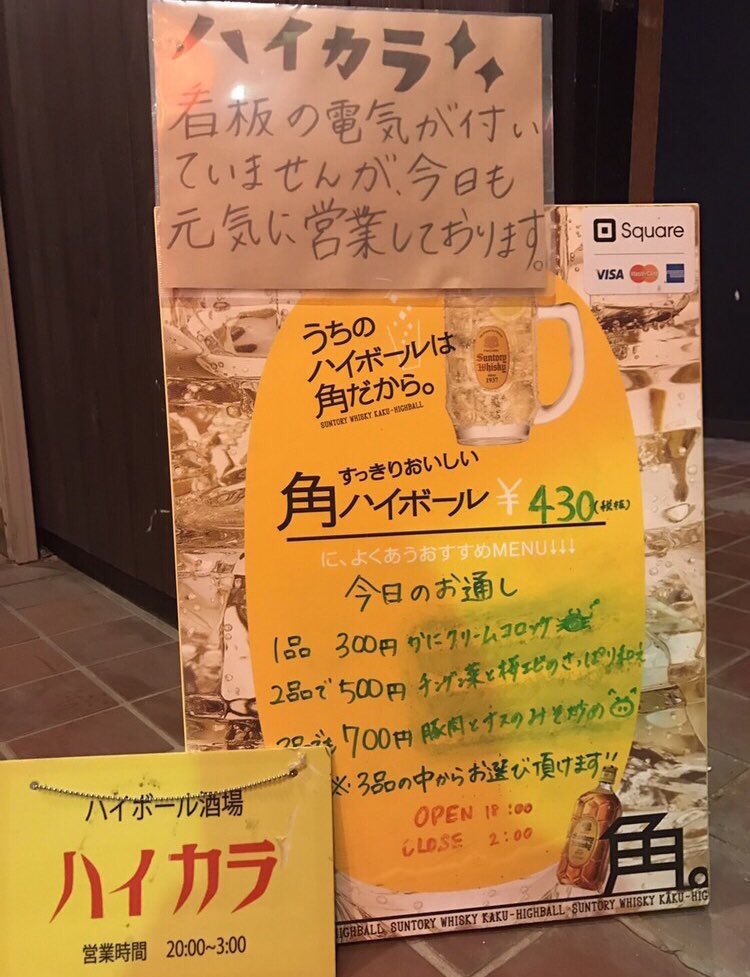 ハイカラ
看板の電気が付い
ていませんが、今日も
元気に営業しております。
Square
VISA MasterCard
うちの
ハイボールは
角だから。
SUNTORY WHISKY KAKU-HIGHBALL
Suntory
Whisky
1937
すっきりおいしい
角ハイボール ¥430(税抜)
に、よくあうおすすめMENU↓↓↓
今日のお通し
1品 300円 かにクリームコロッケ
2品で 500円 チンゲン菜と桜エビのさっぱり和え
3品でも 700円 豚肉とナスのみそ炒め
※3品の中からお選び頂けます!!
OPEN 18:00
CLOSE 2:00
角。
IGHBALL SUNTORY WHISKY KAKU-HIGHBALL SUNTORY WHISKY KAKU-HIG
ハイボール酒場
ハイカラ
営業時間 20:00~3:00